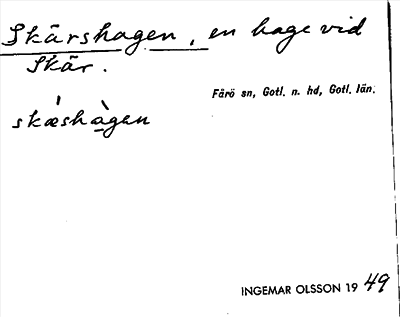 Skärshagen, en hage vid
Skär.
Fårö sn, Gotl. n. hd, Gotl. län.
skǽshàgen
INGEMAR OLSSON 19 49